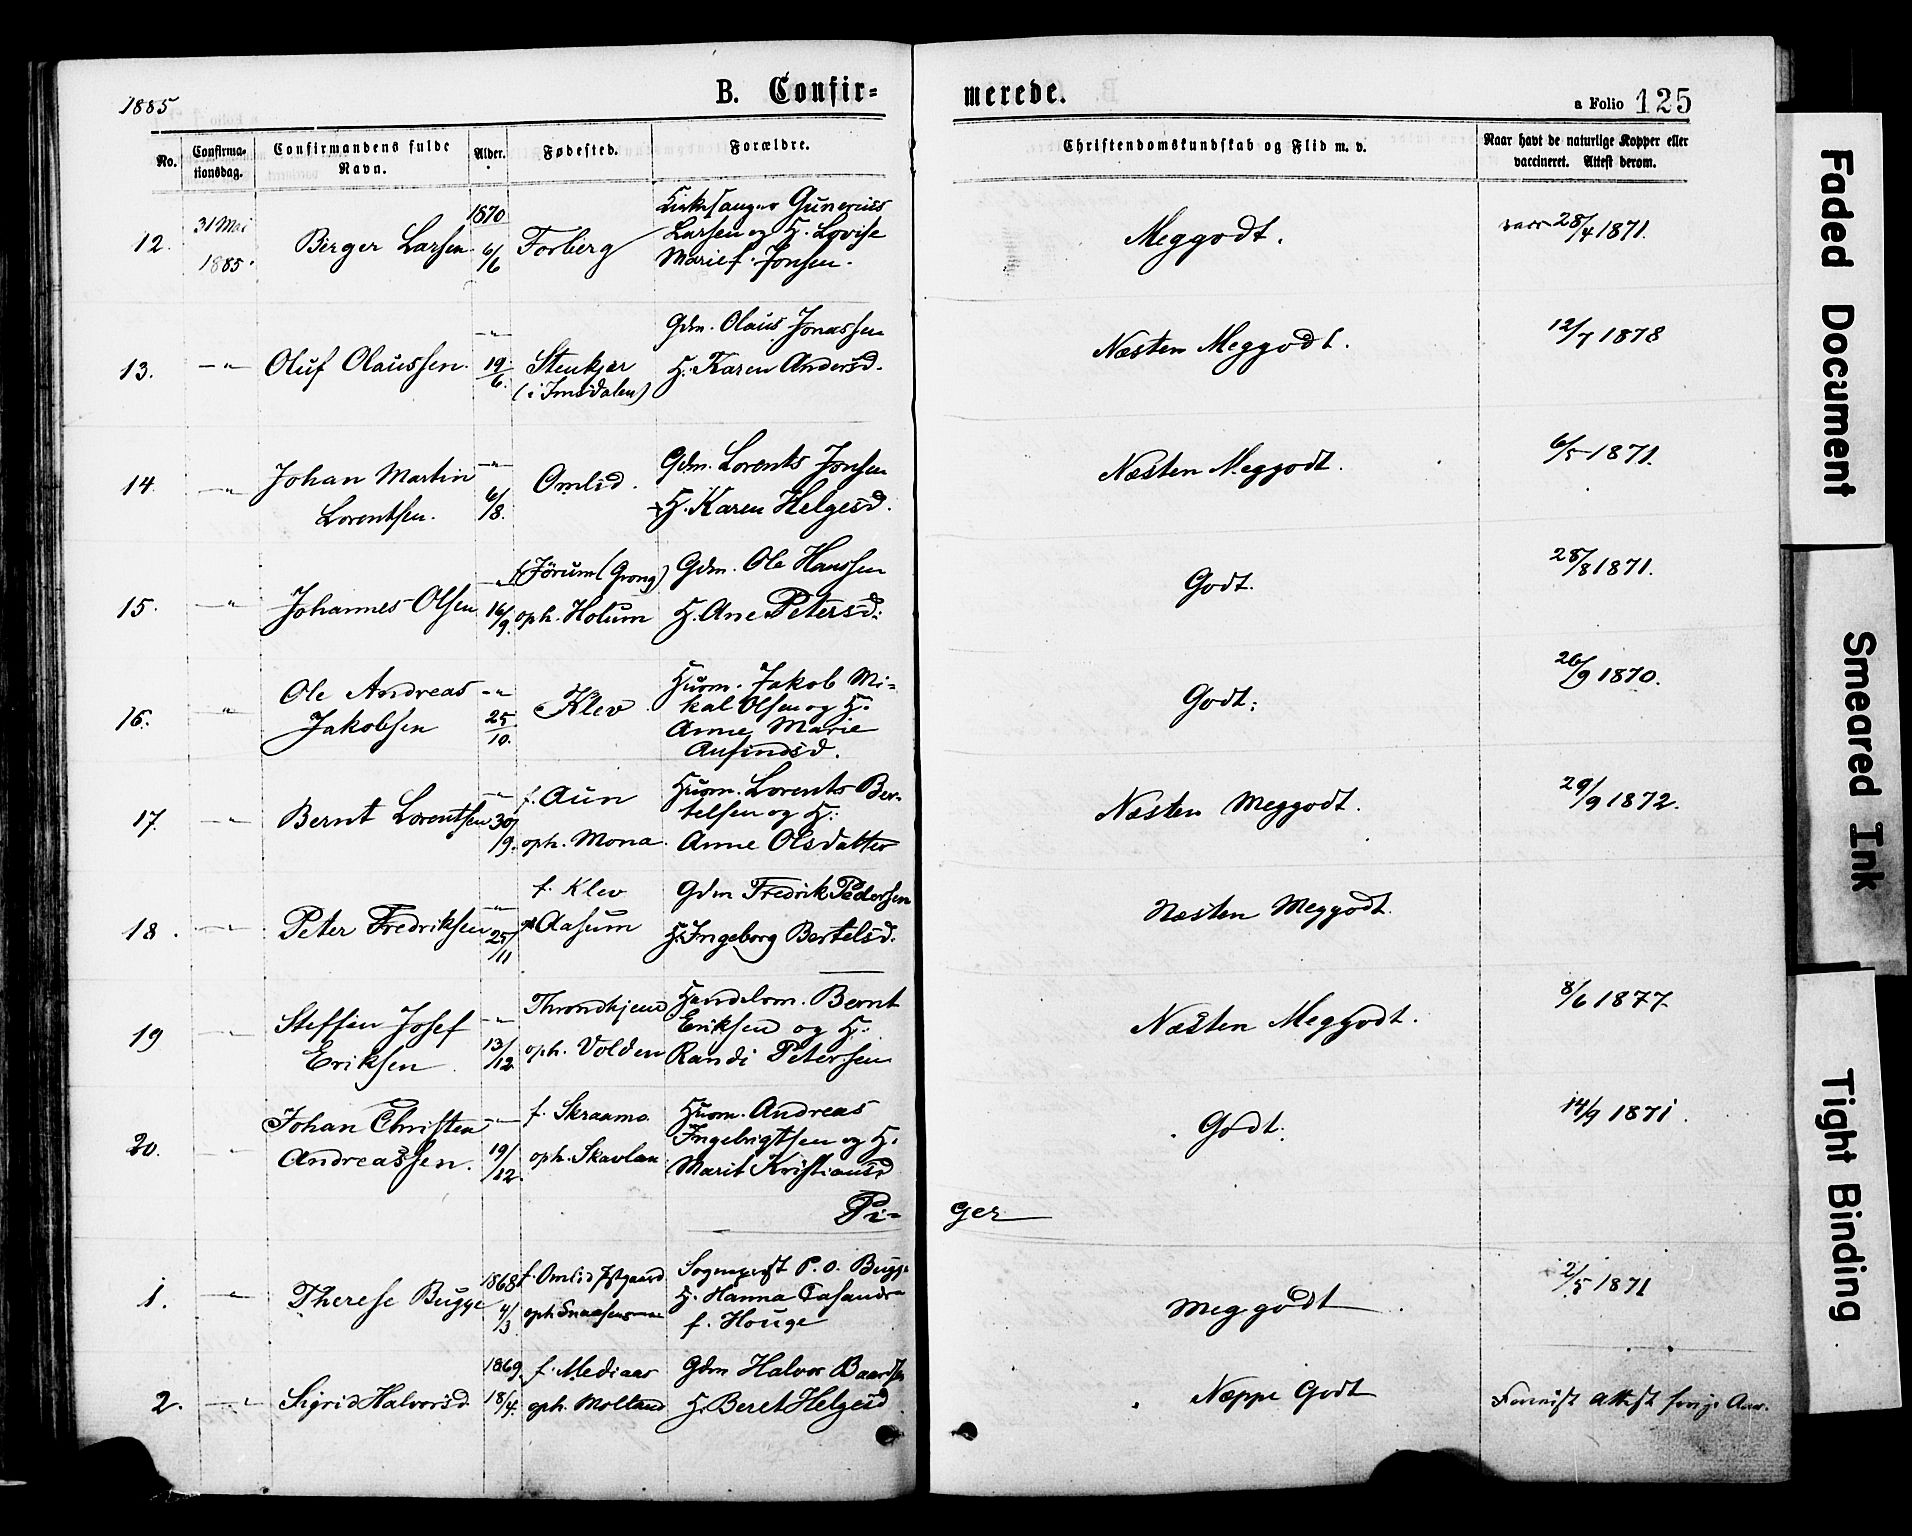 1885
B. Confir-
merede.
a Folio 125
No.
Confirma-
tionsdag.
Confirmandens fulde
Navn.
Alder.
Fødested.
Forældre.
Christendomskundskab og Flid m. v.
Naar havt de naturlige Kopper eller
vaccineret. Attest derom.
12. 31 Mai 1885. Berger Larsen. 1870 6/6 Forberg
Kirkesanger Gunerius
Larsen og H. Lovise
Marie f. Jonsen.
Meggodt. vacc 28/4 1871.
13. —"— Oluf Olaussen. —"— 19/6. Stenkjær
(i Imsdalen)
Gdm. Olaus Jonassen
H. Karen Andersd.
Næsten Meggodt. 12/7 1878
14. —"— Johan Martin
Lorentsen. —"— 6/8. Omlid.
Gdm. Lorents Jonsen
H. Karen Helgesd.
Næsten Meggodt. 6/5 1871.
15. —"— Johannes Olsen —"— 16/9. f. Jörum (Grong)
oph. Holum
Gdm. Ole Hansen
H. Ane Petersd.
Godt. 28/8 1871.
16. " Ole Andreas
Jakobsen —"— 25/10. Klev.
Husm. Jakob Mi-
kal Olsen og H.
Anne Marie
Anfindsd.
Godt. 26/9 1870.
17. —"— Bernt Lorentsen —"— 30/9. f. Aun
oph. Mona.
Husm. Lorents Ber-
telsen og H.
Anne Olsdatter
Næsten Meggodt. 29/9 1872.
18. —"— Peter Fredriksen —"— 25/11 f. Klev
Aasum
Gdm Fredrik Pedersen
H. Ingeborg Bertelsd.
Næsten Meggodt.
19 —"— Steffen Josef
Eriksen. —"— 13/12 Throndhjem
oph. Volden
Handelsm. Bernt
Eriksen og H.
Randi Petersen
Næsten Meggodt. 8/6 1877
20. —"— Johan Christen
Andreassen. —"— 19/12. f. Skraamo.
oph. Skavlan
Husm. Andreas
Ingebrigtsen og H.
Marit Kristiansd
Godt. 14/9 1871.
Pi-
ger
1. —"— Therese Bugge 1868 4/3 f. Omlid
oph.
P. O. Bugge
H. Hanna
f. Houge
Meggodt 2/5 1871
2. —"— Sigrid Halvorsd. 1869. 18/4. f. Mediaas
oph. Molland
Gdm Halvor
H. Beret Helgesd
Næppe Godt Attest
Faded Document
Smeared Ink
Tight Binding